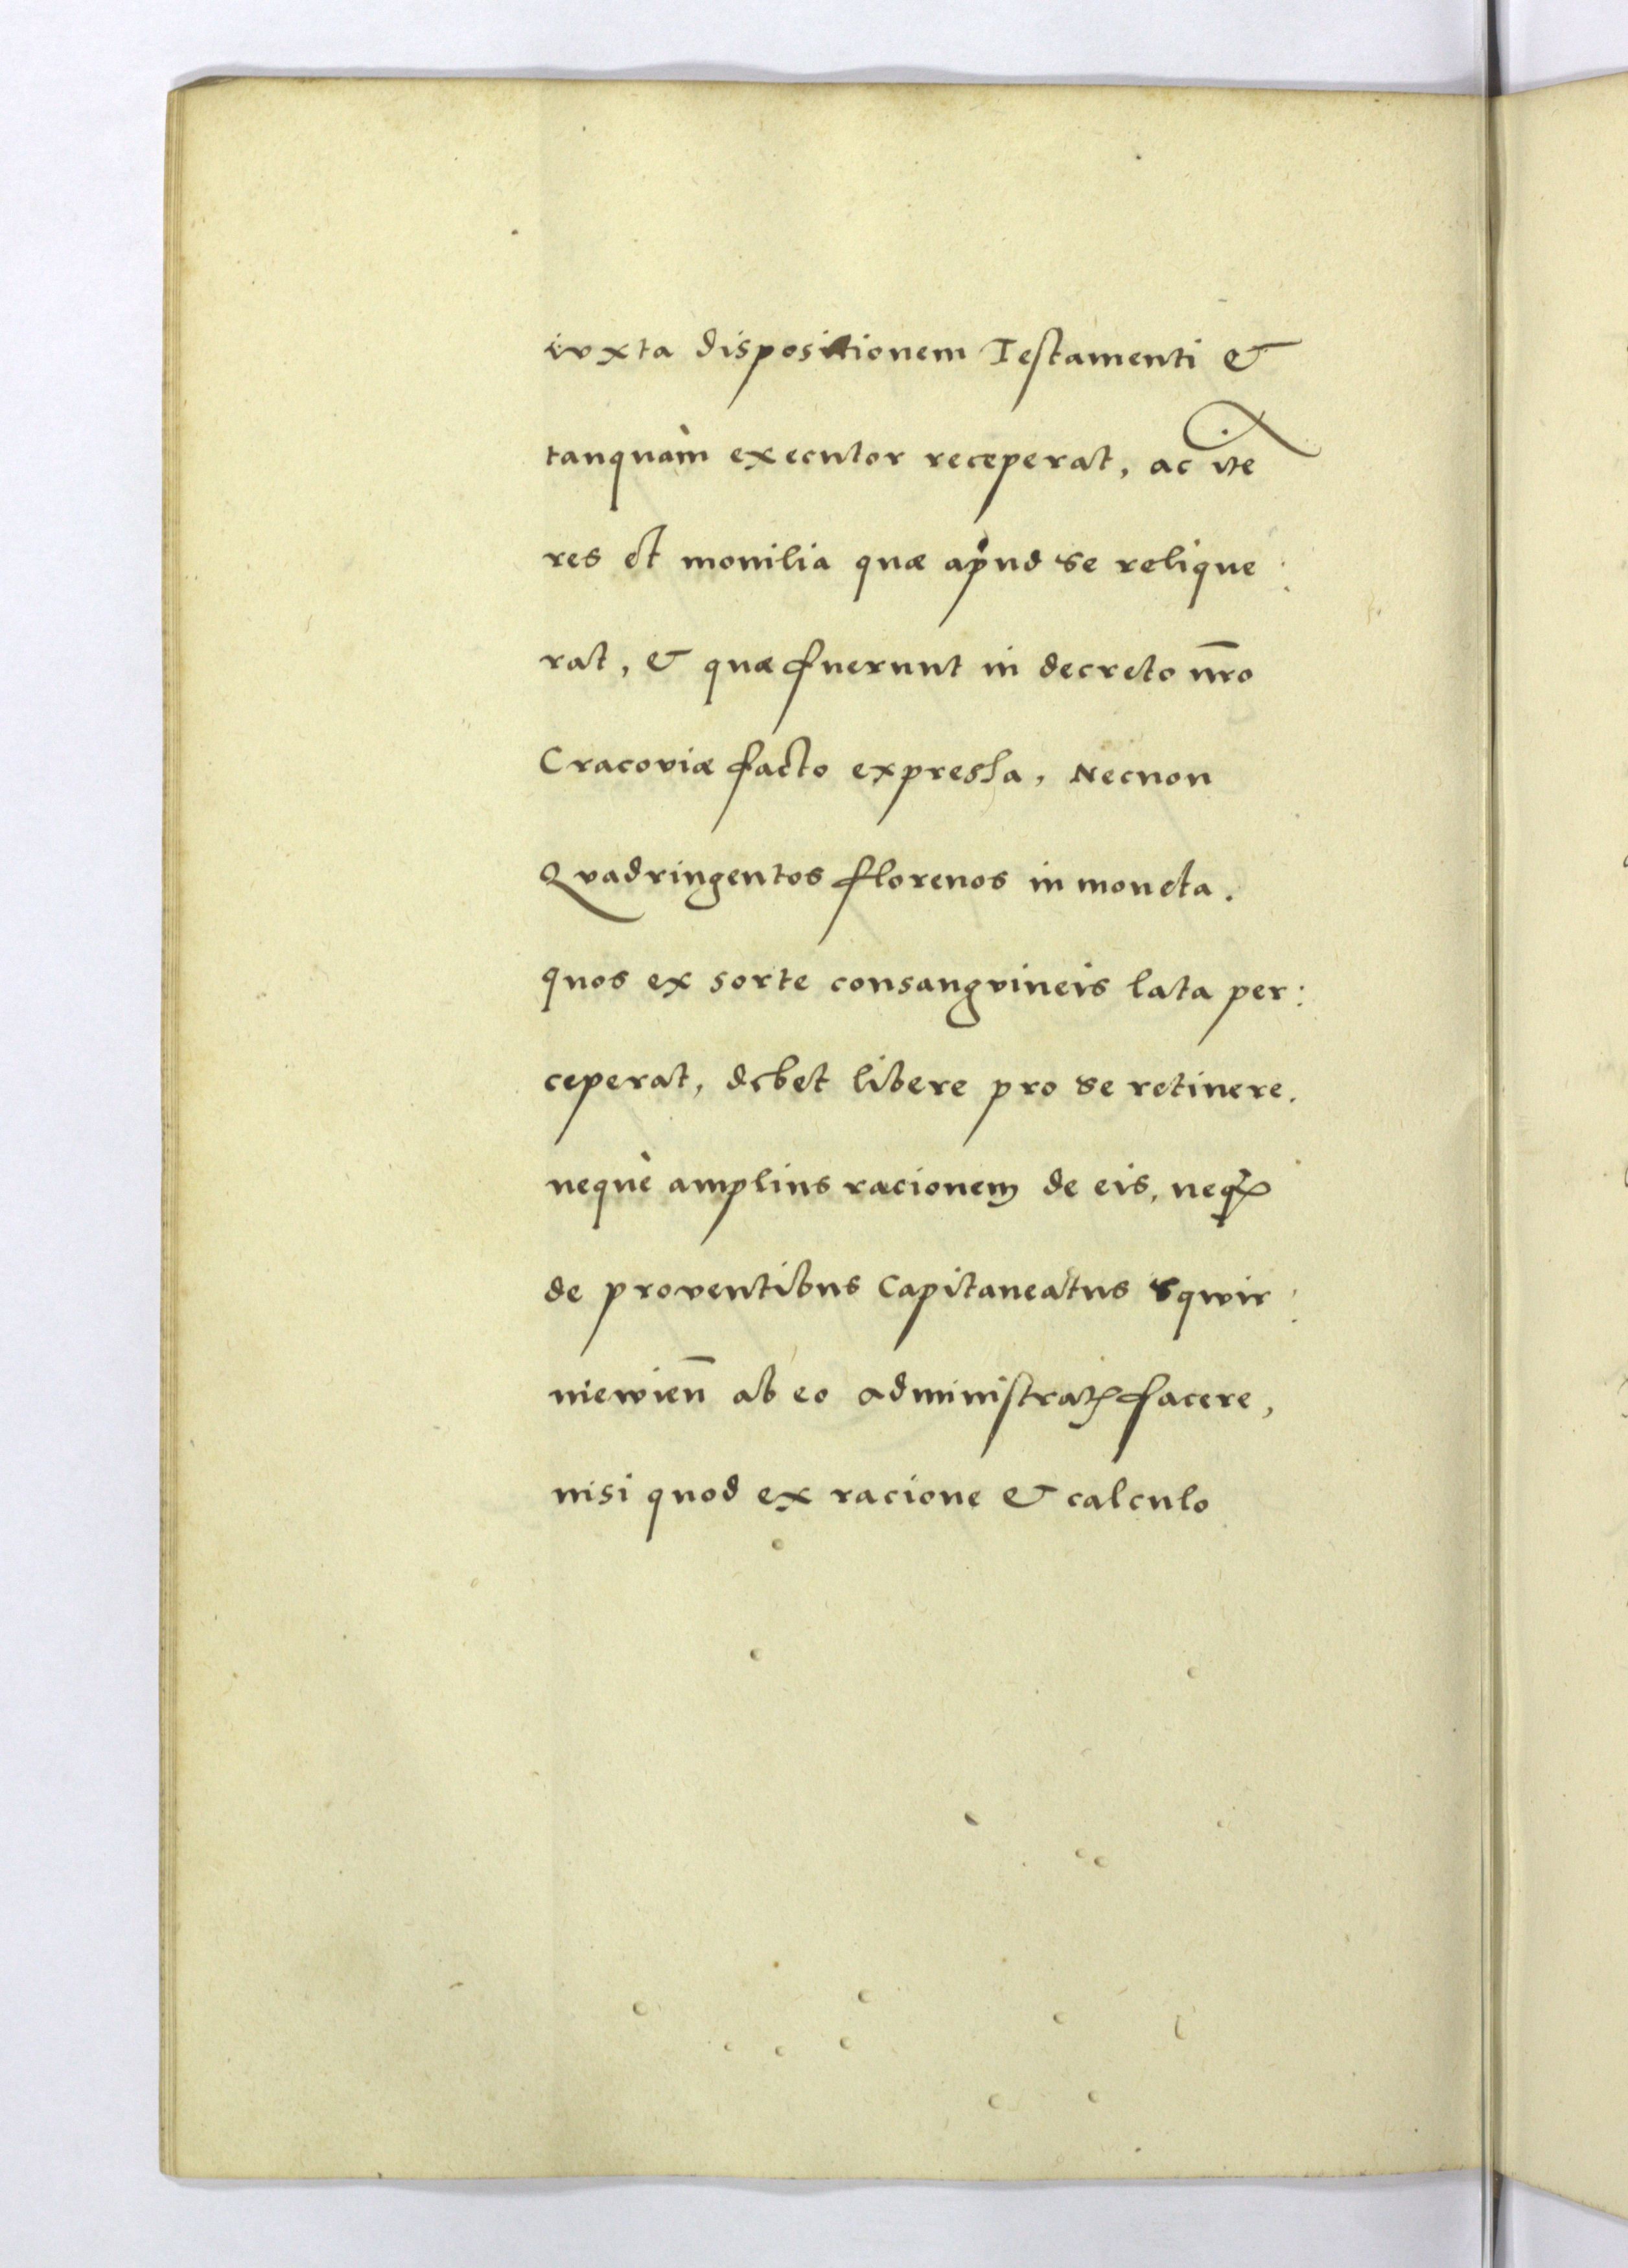 iuxta dispositionem Testamenti &
tanquàm executor receperat, ac ite
res et monilia quæ apud se relique:
rat, & quæ fuerunt in decreto nr̄o
Cracoviæ facto expressa, Necnon
Qvadringentos florenos in moneta.
quos ex sorte consangvineis lata per:
ceperat, debet libere pro se retinere.
nequè amplius racionem de eis, neqꝫ
de proventibus Capitaneatus Sqwir:
niewien̄ ab eo administratꝭ facere,
nisi quod ex racione & calculo